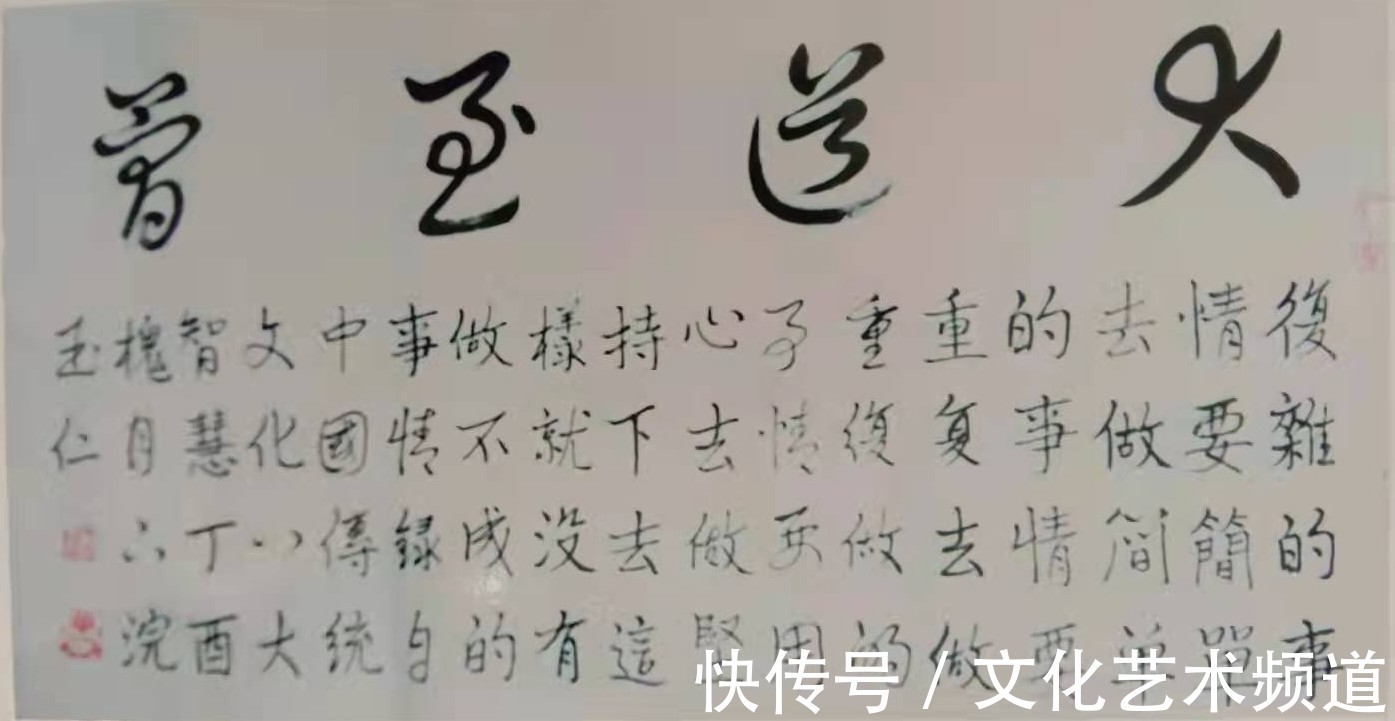 大道至简
復雜的事
情要簡單
去做简单
的事情要
重复去做
重復做的
事情要用
心去做堅
持下去這
樣就没有
做不成的
事情録自
中國傳統
文化八大
智慧丁酉
槐月浣
玉仁
快传号 / 文化艺术频道